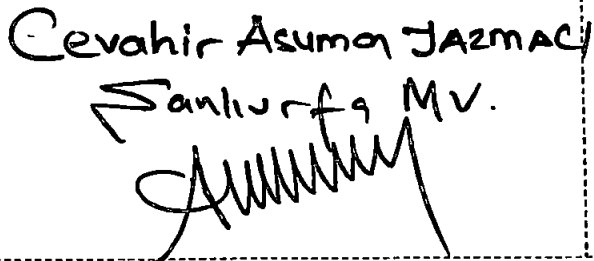 Cevahir Asuman YAZMACI
Şanlıurfa MV.